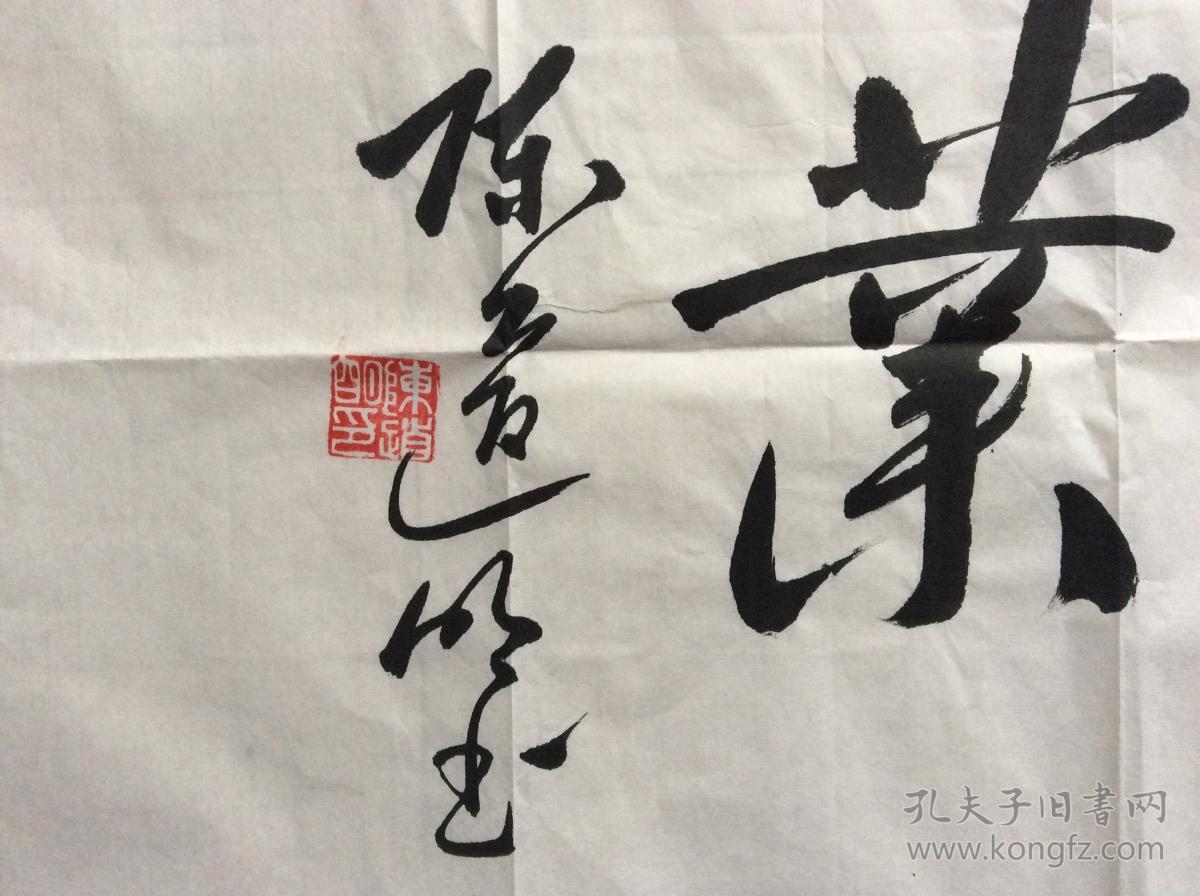 業
陈道明书
陳道明印
孔夫子旧書网
www.kongfz.com